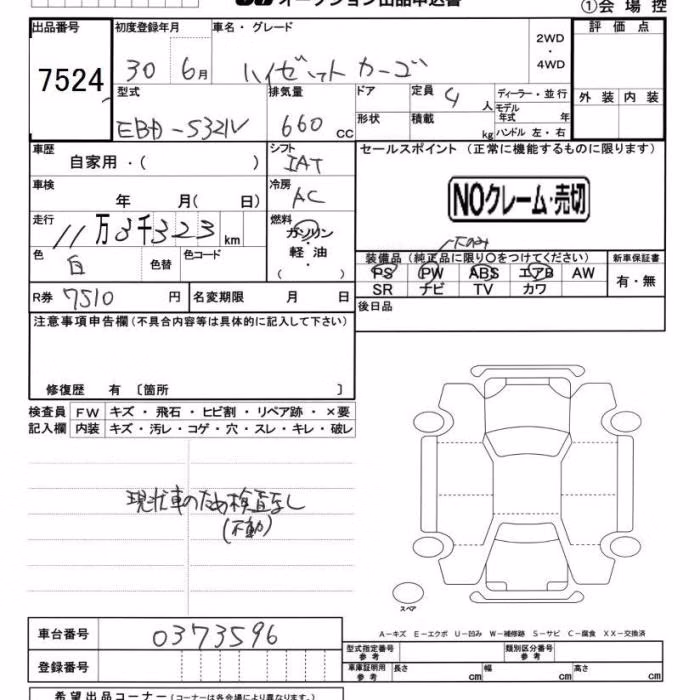 オークション出品申込書
①会場控
出品番号 初度登録年月 車名・グレード 評価点
7524 30 6月 ハイゼットカーゴ 2WD・4WD
型式 排気量 ドア 定員 4人 ディーラー・並行 外装 内装
モデル年式 年
EBD-S321V 660cc 形状 積載 kg ハンドル 左・右
車歴 自家用・( ) シフト IAT セールスポイント(正常に機能するものに限ります)
車検 年 月( 日) 冷房 AC NOクレーム・売切
走行 11万3千323km 燃料 ガソリン・軽油・( )
色 白 色替 色コード 装備品(純正品に限り○をつけてください) 新車保証書
PS PW ABS エアB AW 有・無
SR ナビ TV カワ
R券 7510円 名変期限 月 日 後日品
注意事項申告欄(不具合内容等は具体的に記入して下さい)
修復歴 有 〔箇所 〕
検査員 FW キズ・飛石・ヒビ割・リペア跡・×要
記入欄 内装 キズ・汚レ・コゲ・穴・スレ・キレ・破レ
現状車のため検査なし
(不動)
スペア
A－キズ E－エクボ U－凹み W－補修跡 S－サビ C－腐食 XX－交換済
車台番号 0373596
型式指定番号 参考 類別区分番号 参考
登録番号 車庫証明用 参考 長さ cm 幅 cm 高さ cm
希望出品コーナー(コーナーは各会場により異なります。)